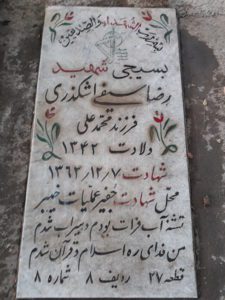 بسیجی شهید
رضا سیفی اشکذری
فرزند محمد علی
ولادت ۱۳۴۲
شهادت ۱۳۶۲/۱۲/۷
محل شهادت جفیر عملیات خیبر
تشنه آب فرات بودم و سیراب شدم
من فدای ره اسلام و قرآن شدم
قطعه ۲۷ ردیف ۸ شماره ۸